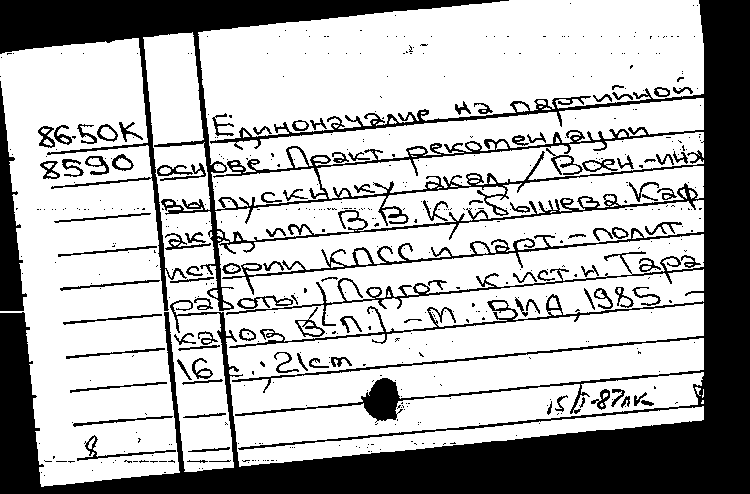 86-50К Единоначалие на партийной
8590 основе: Практ. рекомендации
выпускнику акад. / Воен.-инж
акад. им. В.В. Куйбышева. Каф
истории КПСС и парт.-полит.
работы; [Подгот. к.ист.н. Тара
канов В.П.]. - М.: ВИА, 1985. -
16 с.; 21см.
8